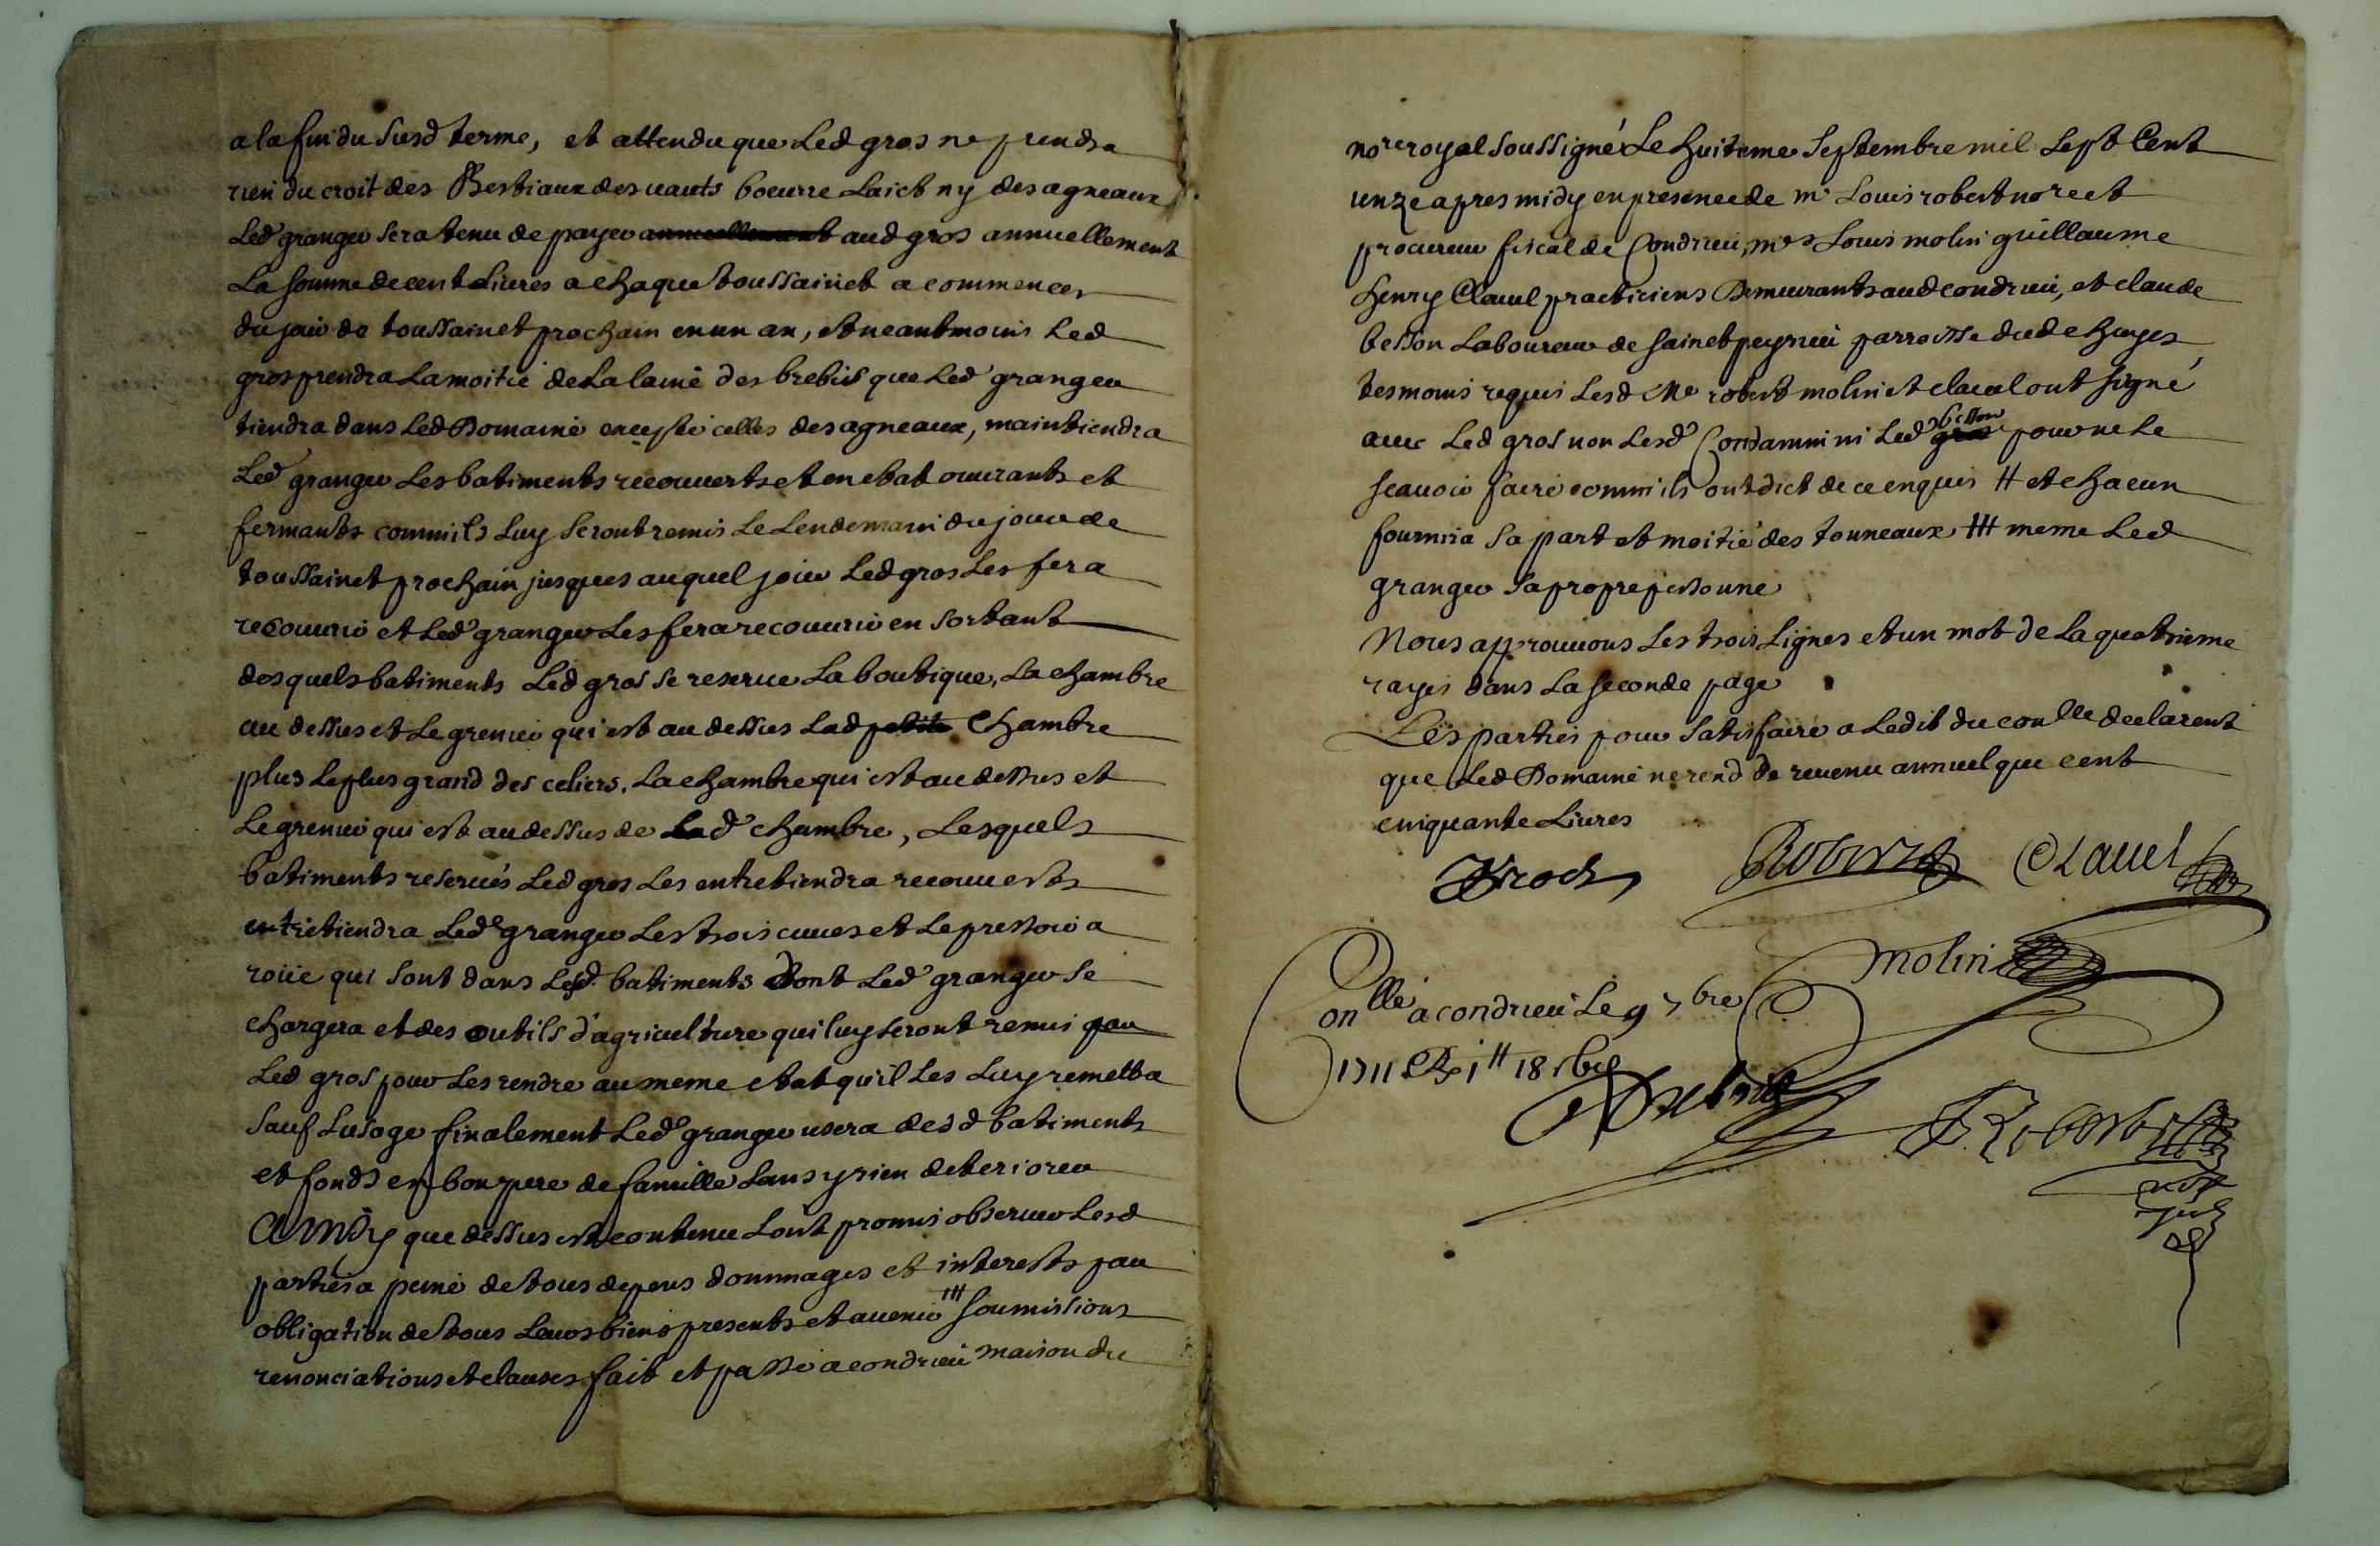 a la fin du susd terme, et attendu que Led gros ne prendra
rien du croit des Bestiaux des uauts boeurre Laict ny des agneaux
Led granger sera tenu de payer annuellement aud gros annuellement
La somme de cent Liures a chaque toussainct a commencer
du jour de toussainct prochain en un an, et neantmoins Led
gros prendra La moitié de La laine des brebis que Led granger
tiendra dans Led Domaine excepté celles des agneaux, maintiendra
Led granger Les batiments recouuerts et en etat ouurants et
fermants comm'ils Luy seront remis Le Lendemain du jour de
toussainct prochain jusques auquel jour Led gros Les fera
recouurir et Led granger Les fera recouurir en sortant
desquels batiments Led gros se reserue La boutique, La chambre
au dessus et Le grenier qui est au dessus Lad petite Chambre
plus Le plus grand des celiers, La chambre qui est au dessus et
Le grenier qui est au dessus de Lad chambre, Lesquels
batiments reserués Led gros Les entretiendra recouuerts
entretiendra Led granger Les trois cuues et Le pressoir a
roüe qui sont dans Lesd. batiments Dont Led granger se
chargera et des outils d'agriculture qui luy seront remis par
Led gros pour Les rendre au meme etat qu'il Les Luy remettra
sauf Lusage finalement Led granger usera desd batiments
et fonds en bon pere de famille sans y rien deteriorer
Ainsy que dessus est contenu L'ont promis obseruer Lesd
parties a peine de tous depens dommages et interests par
obligation de tous Leurs biens presents et auenir ttt soumissions
renonciations et clauses fait et passé a condrieu maison du
nore royal soussigné Le huiteme septembre mil sept Cent
unze apres midy en presence de mr Louis robert nore et
procureur fiscal de Condrieu, mes Louis molin guillaume
henry Clauel practiciens Demeurants aud condrieu, et claude
besson Laboureur de sainct peyrieu parroisse dud chuyes
tesmoins requis Lesd Me robert molin et clauel ont signé
auec Led gros non Lesd Condamin ni Led gros besson pour ne Le
scauoir faire comm'ils ont dict de ce enquis tt et chacun
fournira sa part et moitié des tonneaux ttt meme Led
granger sa propre personne
Nous approuuons Les trois Lignes et un mot de La quatrieme
rayes dans La seconde page
Les parties pour satisfaire a Ledit du conlle declarent
que Led Domaine ne rend de reuenu annuel que cent
cinquante Liures
Robert Clauel
molin
Conllé a condrieu Le 9 7bre
1711 R 1tt 18
Robert